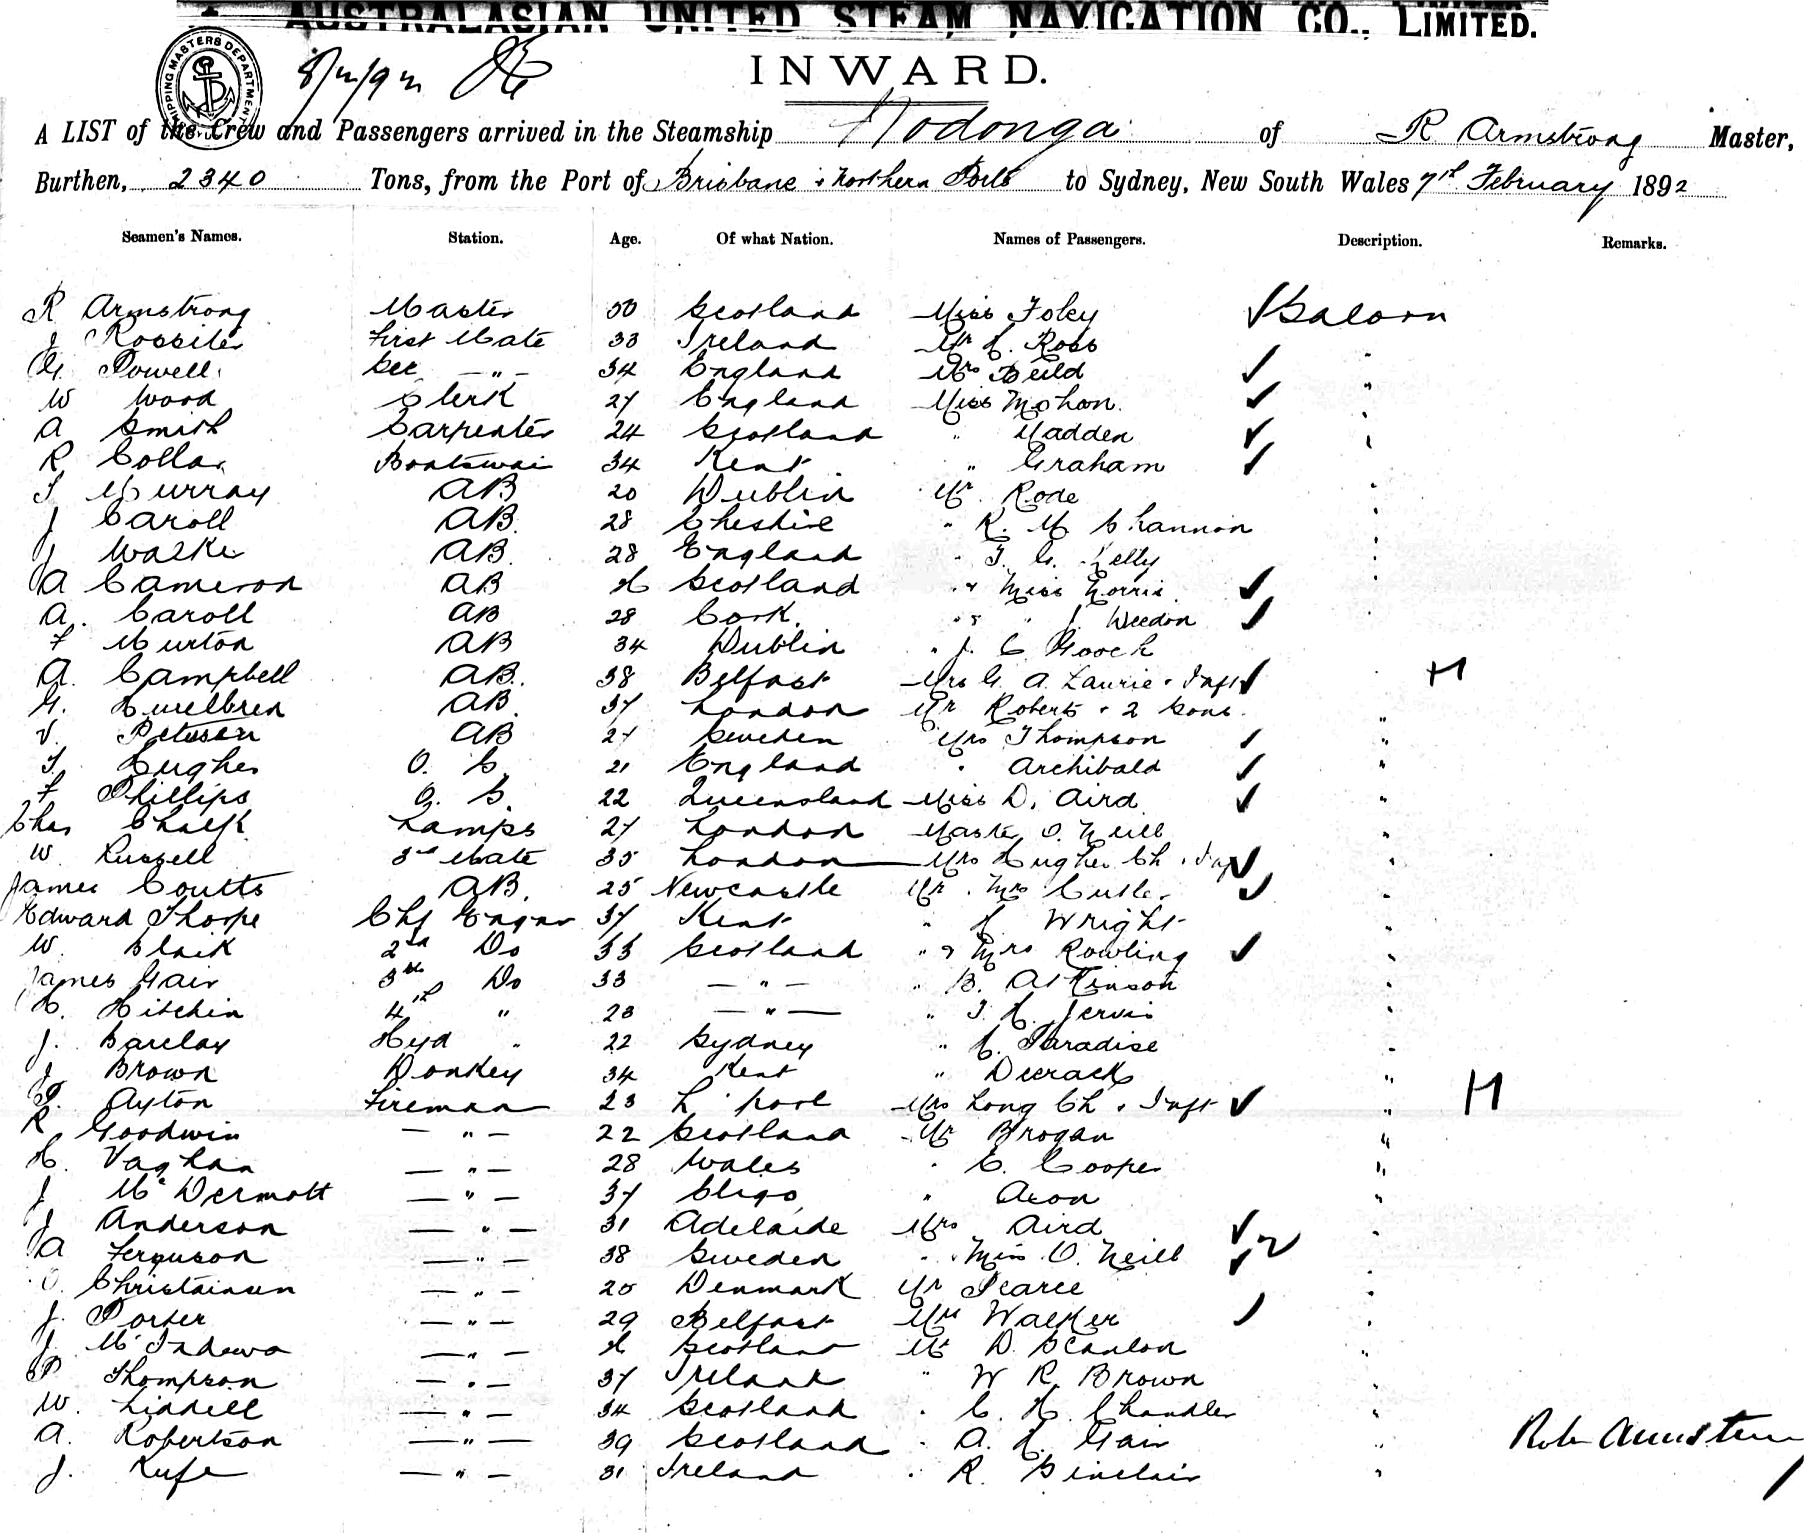 AUSTRALASIAN UNITED STEAM NAVIGATION CO., LIMITED.
SHIPPING MASTERS DEPARTMENT
INWARD.
A LIST of the Crew and Passengers arrived in the Steamship Wodonga of R Armstrong Master,
Burthen, 2340 Tons, from the Port of Brisbane & Northern Ports to Sydney, New South Wales 7th February 1892
Seamen's Names. Station. Age. Of what Nation. Names of Passengers. Description. Remarks.
R Armstrong Master 50 Scotland Miss Foley Saloon
J Rossiter First Mate 33 Ireland Mr Ross "
Powell Sec " 34 England "
W Wood Clerk 27 England Miss Mohon "
A Smith Carpenter 24 Scotland " Madden
R Collar Boatswain 34 Kent " Graham
T Murray AB 20 Dublin Mr Rode
J Caroll AB. 28 Cheshire " R. M Channon
J Walker AB. 28 England " T. G. Kelly
A Cameron AB Scotland " Miss Norris
A. Caroll AB 28 Cork. " " J. Weedon
F Murton AB 34 Dublin " J. C Gooch
A. Campbell AB. 38 Belfast Mrs G. A. Laurie & Inft H
G. AB. 37 London Mr Roberts & 2 Sons. "
V. Petersen AB 27 Sweden Mrs Thompson "
T. Hughes O. S. 21 England " Archibald "
F Phillips O. S. 22 Queensland Miss D. Aird "
Chas Chalk Lamps 27 London Master O. Neill
W. Russell 3rd Mate 35 London Mrs Hughes Ch & Inf
James Coutts AB. 25 Newcastle Mr & Mrs Cutler
Edward Thorpe Chf Engnr 37 Kent " Wright
W. Blaik 2nd Do 33 Scotland " & Mrs Rowling
James Gair 3rd Do 33 " " B. Atkinson
H. Hitchin 4th " 23 " " T. H. Jervis
J. Barclay Hyd " 22 Sydney " Paradise
J Brown Donkey 34 Kent "
Ayton Fireman 23 L'pool Mrs Long Ch & Inft " H
R Goodwin " 22 Scotland Mr Brogan "
H. Vaghan " 28 Wales " C. Cooper "
J McDermott " 37 Sligo " Acon "
J Anderson " 31 Adelaide Mrs Aird
A Ferguson " 38 Sweden " Miss O. Neill
Christainsen " 25 Denmark Mr Pearce
J. Porter " 29 Belfast Mrs Walker
J. " Scotland Mr D. Scanlon
P Thompson " 37 Ireland " W R. Brown
W. Liddell " 34 Scotland " C. H. Chandler
A. Robertson " 39 Scotland " A. Gair " Robt Armstrong
J. " 31 Ireland " R. Sinclair "